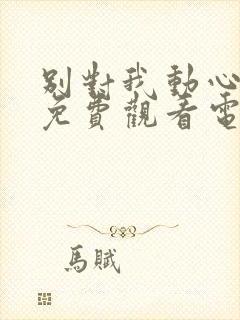 別對我動心
免費觀看電
馬賦